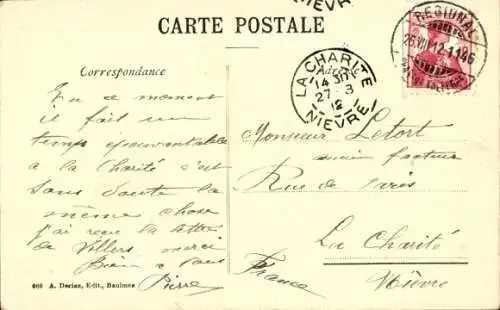 NIÈVRE
CARTE POSTALE
REGIONAL
26.VII.12.11
LA CHARITÉ
14 30
27 - 8
12
NIÈVRE
Correspondance
Adresse
En ce moment
il fait un
temps épouvantable
a la Charité c'est
sans doute la
même chose
j'ai reçu la lettre
de Villers merci
Bien a tous
Pierre
Monsieur Letort
ancien facteur
Rue de Paris
La Charité
Nièvre
France
609 A. Deriaz, Edit., Baulmes